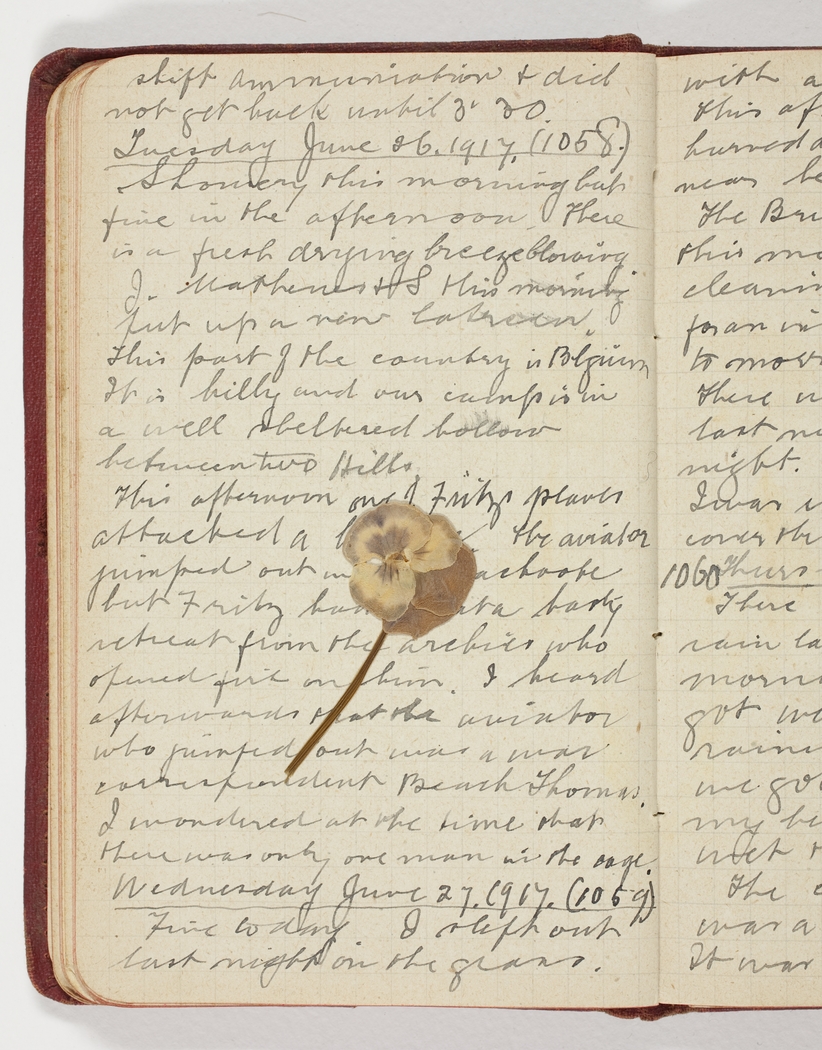 shift ammuniation & did
not get back until 3. 30.
Tuesday June 26. 1917. (1058.)
Showery this morning but
fine in the afternoon. There
is a fresh drying breeze blowing
J. Mathews & I this morning
put up a new
This part of the country is Belgium
It is hilly and our camp is in
a well sheltered hollow
between two Hills
This afternoon one of Fritzs planes
attacked a the aviator
jumped out
but Fritz had hasty
retreat from the archies who
opened fire on him. I heard
afterwards that the aviator
who jumped out was a war
correspondent Beach Thomas.
I wondered at the time that
there was only one man in the cage.
Wednesday June 27. 1917. (1059)
Fine today I slept out
last night on the grass.
with a
this af
hurried
near be
The Bri
this mo
cleanin
for an in
to morr
There w
last ni
night.
I was
cover the
1060 Thurs
There
rain la
morni
got we
raini
we go
my be
wet
The
was a
It was